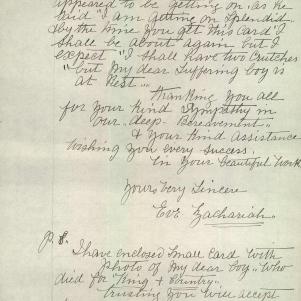 appeared to be getting on, as he
said "I am getting on Splendid
& by the time you get this card I
shall be about again but I
expect "I shall have two Crutches
"but My dear Suffering boy is
at Rest...
Thanking You all
for Your kind Sympathy in
our "deep Bereavement"
& Your kind Assistance
Wishing You every Success.
In Your beautiful Work
Yours Very Sincere
Eve Zachariah.
P.S.
I have enclosed Small Card with
photo of My dear boy, Who
died for "King & Country"
trusting You Will accept